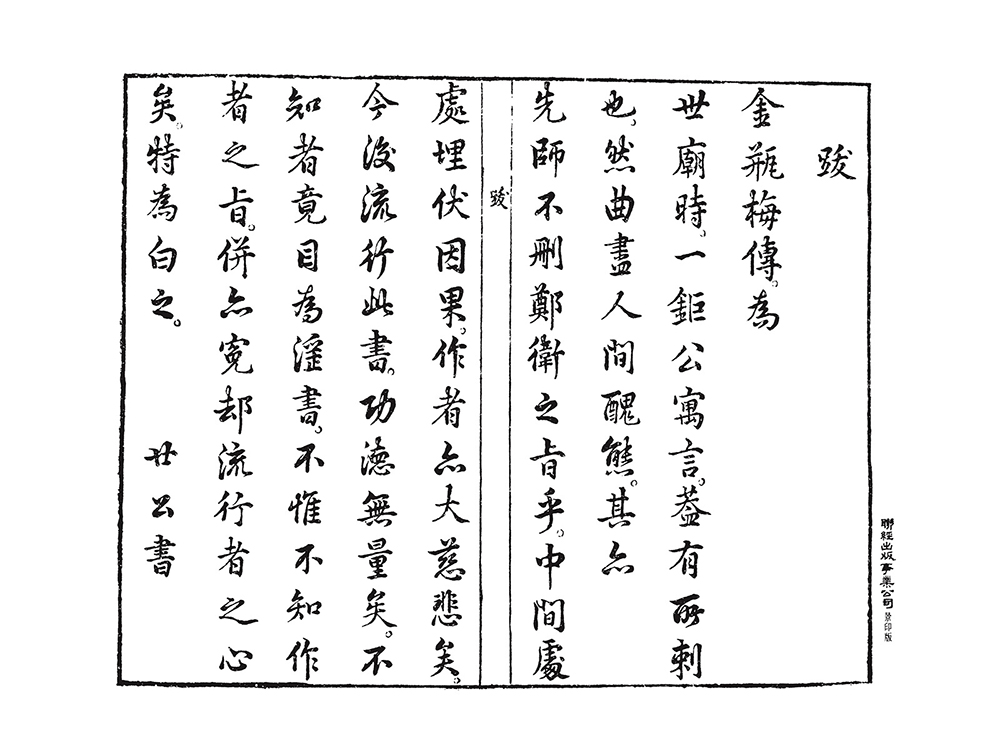 跋
金瓶梅傳。為
世廟時。一鉅公寓言。蓋有所刺
也。然曲盡人間醜態。其亦
先師不刪鄭衛之旨乎。中間處
跋
處埋伏因果。作者亦大慈悲矣。
今後流行此書。功德無量矣。不
知者竟目為淫書。不惟不知作
者之旨。併亦冤却流行者之心
矣。特為白之。 廿公書
聯經出版事業公司 景印版